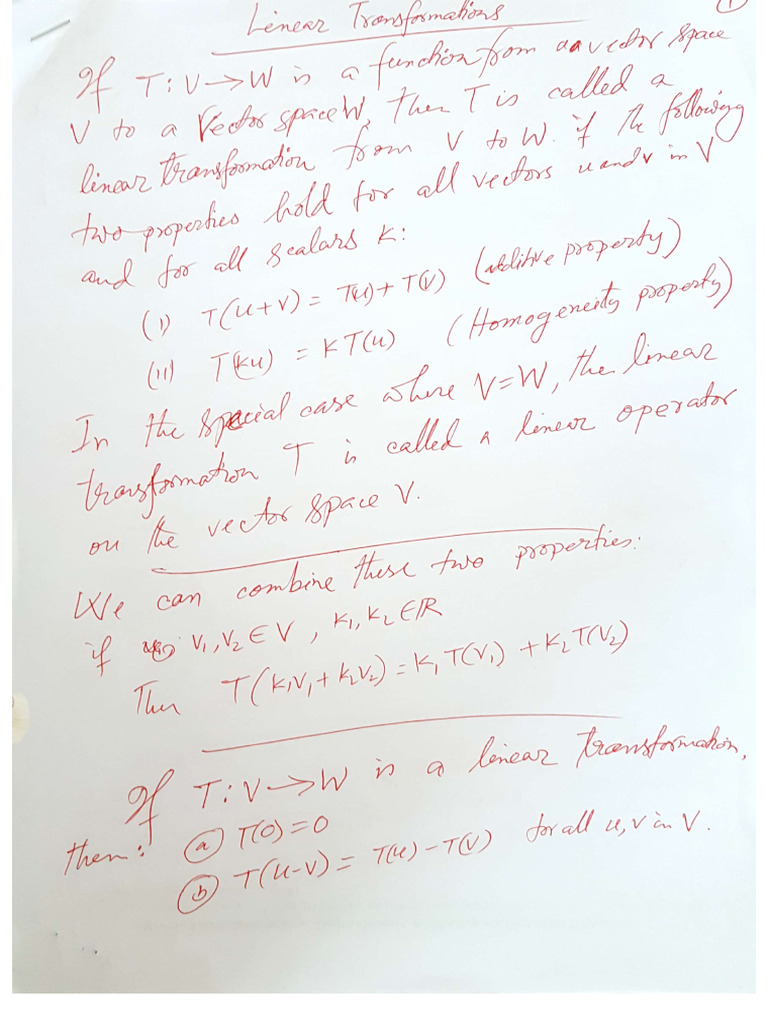 Linear Transformations
1
If T: V → W is a function from a vector space
V to a Vector space W, then T is called a
linear transformation from V to W. if the following
two properties hold for all vectors u and v in V
and for all scalars k:
(i) T(u+v) = T(u) + T(v) (additive property)
(ii) T(ku) = k T(u) (Homogeneity property)
In the special case where V=W, the linear
transformation T is called a linear operator
on the vector space V.
We can combine these two properties:
if v₁, v₂ ∈ V , k₁, k₂ ∈ ℝ
Then T(k₁v₁ + k₂v₂) = k₁ T(v₁) + k₂ T(v₂)
If T: V → W is a linear transformation,
then: (a) T(0) = 0
(b) T(u-v) = T(u) - T(v) for all u, v in V.